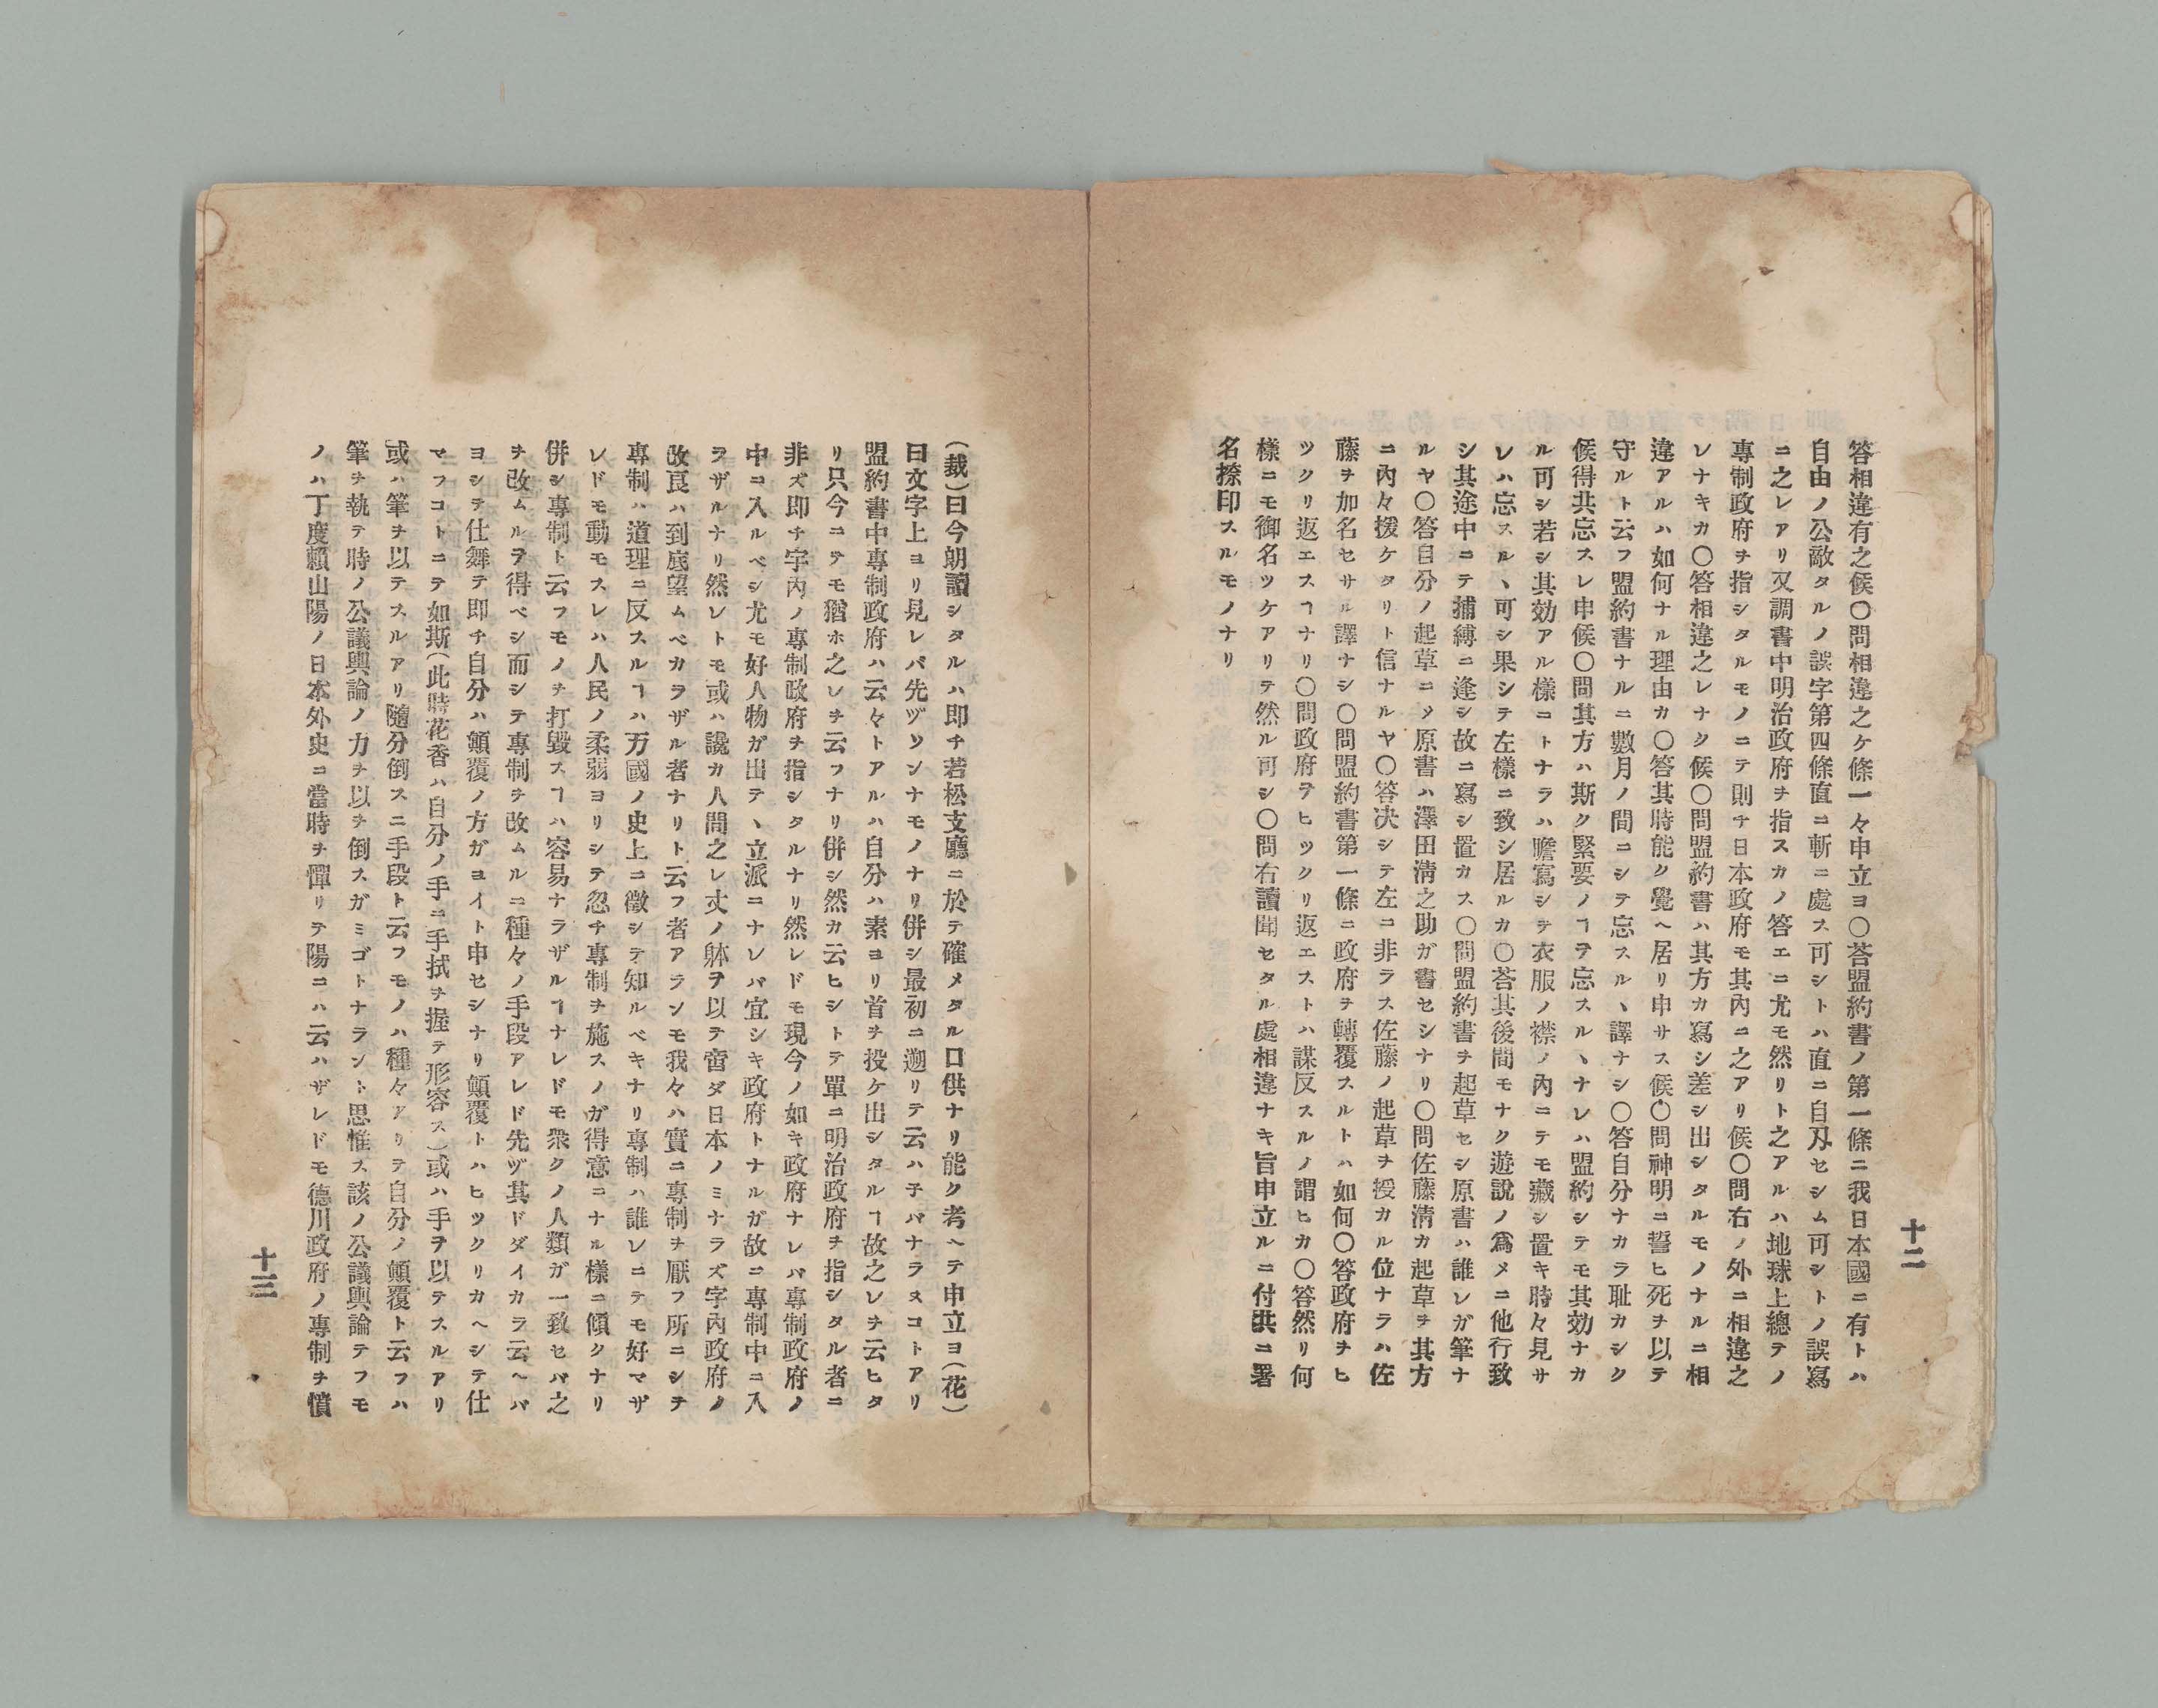 答相違有之候〇問相違之ケ條一々申立ヨ〇荅盟約書ノ第一條ニ我日本國ニ有トハ
自由ノ公敵タルノ誤字第四條直ニ斬ニ處ス可シトハ直ニ自刄セシム可シトノ誤寫
ニ之レアリ又調書中明治政府ヲ指スカノ答エニ尤モ然リト之アルハ地球上總テノ
專制政府ヲ指シタルモノニテ則チ日本政府モ其內ニ之アリ候〇問右ノ外ニ相違之
レナキカ〇答相違之レナク候〇問盟約書ハ其方カ寫シ差シ出シタルモノナルニ相
違アルハ如何ナル理由カ〇答其時能ク覺ヘ居リ申サス候〇問神明ニ誓ヒ死ヲ以テ
守ルト云フ盟約書ナルニ數月ノ間ニシテ忘スルヽ譯ナシ〇答自分ナカラ耻カシク
候得共忘スレ申候〇問其方ハ斯ク緊要ノヿヲ忘スルヽナレハ盟約シテモ其効ナカ
ル可シ若シ其効アル樣コトナラハ瞻寫シテ衣服ノ襟ノ內ニテモ藏シ置キ時々見サ
レハ忘スルヽ可シ果シテ左樣ニ致シ居ルカ〇荅其後間モナク遊說ノ爲メニ他行致
シ其途中ニテ捕縛ニ逢シ故ニ寫シ置カス〇問盟約書ヲ起草セシ原書ハ誰レガ筆ナ
ルヤ〇答自分ノ起草ニメ原書ハ澤田淸之助ガ書セシナリ〇問佐藤淸カ起草ヲ其方
ニ內々援ケタリト信ナルヤ〇答决シテ左ニ非ラス佐藤ノ起草ヲ授カル位ナラハ佐
藤ヲ加名セサル譯ナシ〇問盟約書第一條ニ政府ヲ轉覆スルトハ如何〇答政府ヲヒ
ツクリ返エスヿナリ〇問政府ヲヒツクリ返エストハ謀反スルノ謂ヒカ〇答然リ何
樣ニモ御名ツケアリテ然ル可シ〇問右讀聞セタル處相違ナキ旨申立ルニ付供ニ署
名捺印スルモノナリ
十二
（裁）曰今朗讀シタルハ即チ若松支廳ニ於テ確メタル口供ナリ能ク考ヘテ申立ヨ（花）
曰文字上ヨリ見レバ先ヅソンナモノナリ併シ最初ニ遡リテ云ハ子バナラヌコトアリ
盟約書中專制政府ハ云々トアルハ自分ハ素ヨリ首ヲ投ケ出シタルヿ故之レヲ云ヒタ
リ只今ニテモ猶ホ之レヲ云フナリ併シ然カ云ヒシトテ單ニ明治政府ヲ指シタル者ニ
非ズ即チ宇內ノ專制政府ヲ指シタルナリ然レドモ現今ノ如キ政府ナレバ專制政府ノ
中ニ入ルベシ尤モ好人物ガ出テヽ立派ニナレバ宜シキ政府トナルガ故ニ專制中ニ入
ラザルナリ然レトモ或ハ讒カ人間之レ丈ノ躰ヲ以テ啻ダ日本ノミナラズ宇內政府ノ
改良ハ到底望ムベカラザル者ナリト云フ者アランモ我々ハ實ニ專制ヲ厭フ所ニシテ
專制ハ道理ニ反スルヿハ万國ノ史上ニ徵シテ知ルベキナリ專制ハ誰レニテモ好マザ
レドモ動モスレハ人民ノ柔弱ヨリシテ忽チ專制ヲ施スノガ得意ニナル樣ニ傾クナリ
併シ專制ト云フモノヲ打毀スヿハ容易ナラザルヿナレドモ衆クノ人類ガ一致セバ之
ヲ改ムルヲ得ベシ而シテ專制ヲ改ムルニ種々ノ手段アレド先ヅ其ドダイカラ云ヘバ
ヨシテ仕舞テ即チ自分ハ顚覆ノ方ガヨイト申セシナリ顚覆トハヒツクリカヘシテ仕
マフコトニテ如斯（此時花香ハ自分ノ手ニ手拭ヲ握テ形容ス）或ハ手ヲ以テスルアリ
或ハ筆ヲ以テスルアリ隨分倒スニ手段ト云フモノハ種々アリテ自分ノ顚覆ト云フハ
筆ヲ執テ時ノ公議輿論ノ力ヲ以テ倒スガミゴトナラント思惟ス該ノ公議輿論テフモ
ノハ丁度賴山陽ノ日本外史ニ當時ヲ憚リテ陽ニハ云ハザレドモ德川政府ノ專制ヲ憤
十三